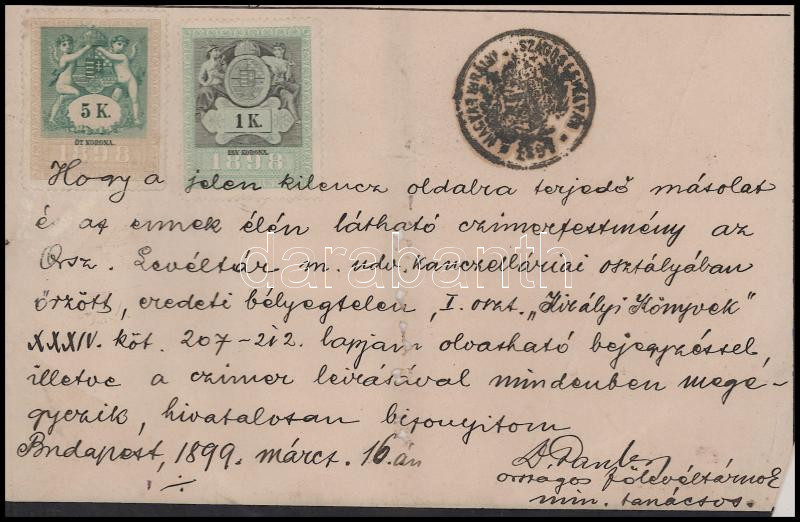 5 K.
ÖT KORONA.
1898
1 K.
EGY KORONA.
1898
Hogy a jelen kilencz oldalra terjedő másolat
é az ennek élén látható czimerfestmény az
Orsz. Levéltár m. udv. kanczelláriai osztályában
őrzött, eredeti bélyegtelen, I. oszt. „Királyi Könyvek"
XXXIV. köt. 207-212. lapjain olvasható bejegyzéssel,
illetve a czimer leirásával mindenben mege-
gyezik, hivatalosan bizonyitom
Budapest, 1899. márcz. 16.án
országos főlevéltárnok
min. tanácsos.
darabanth